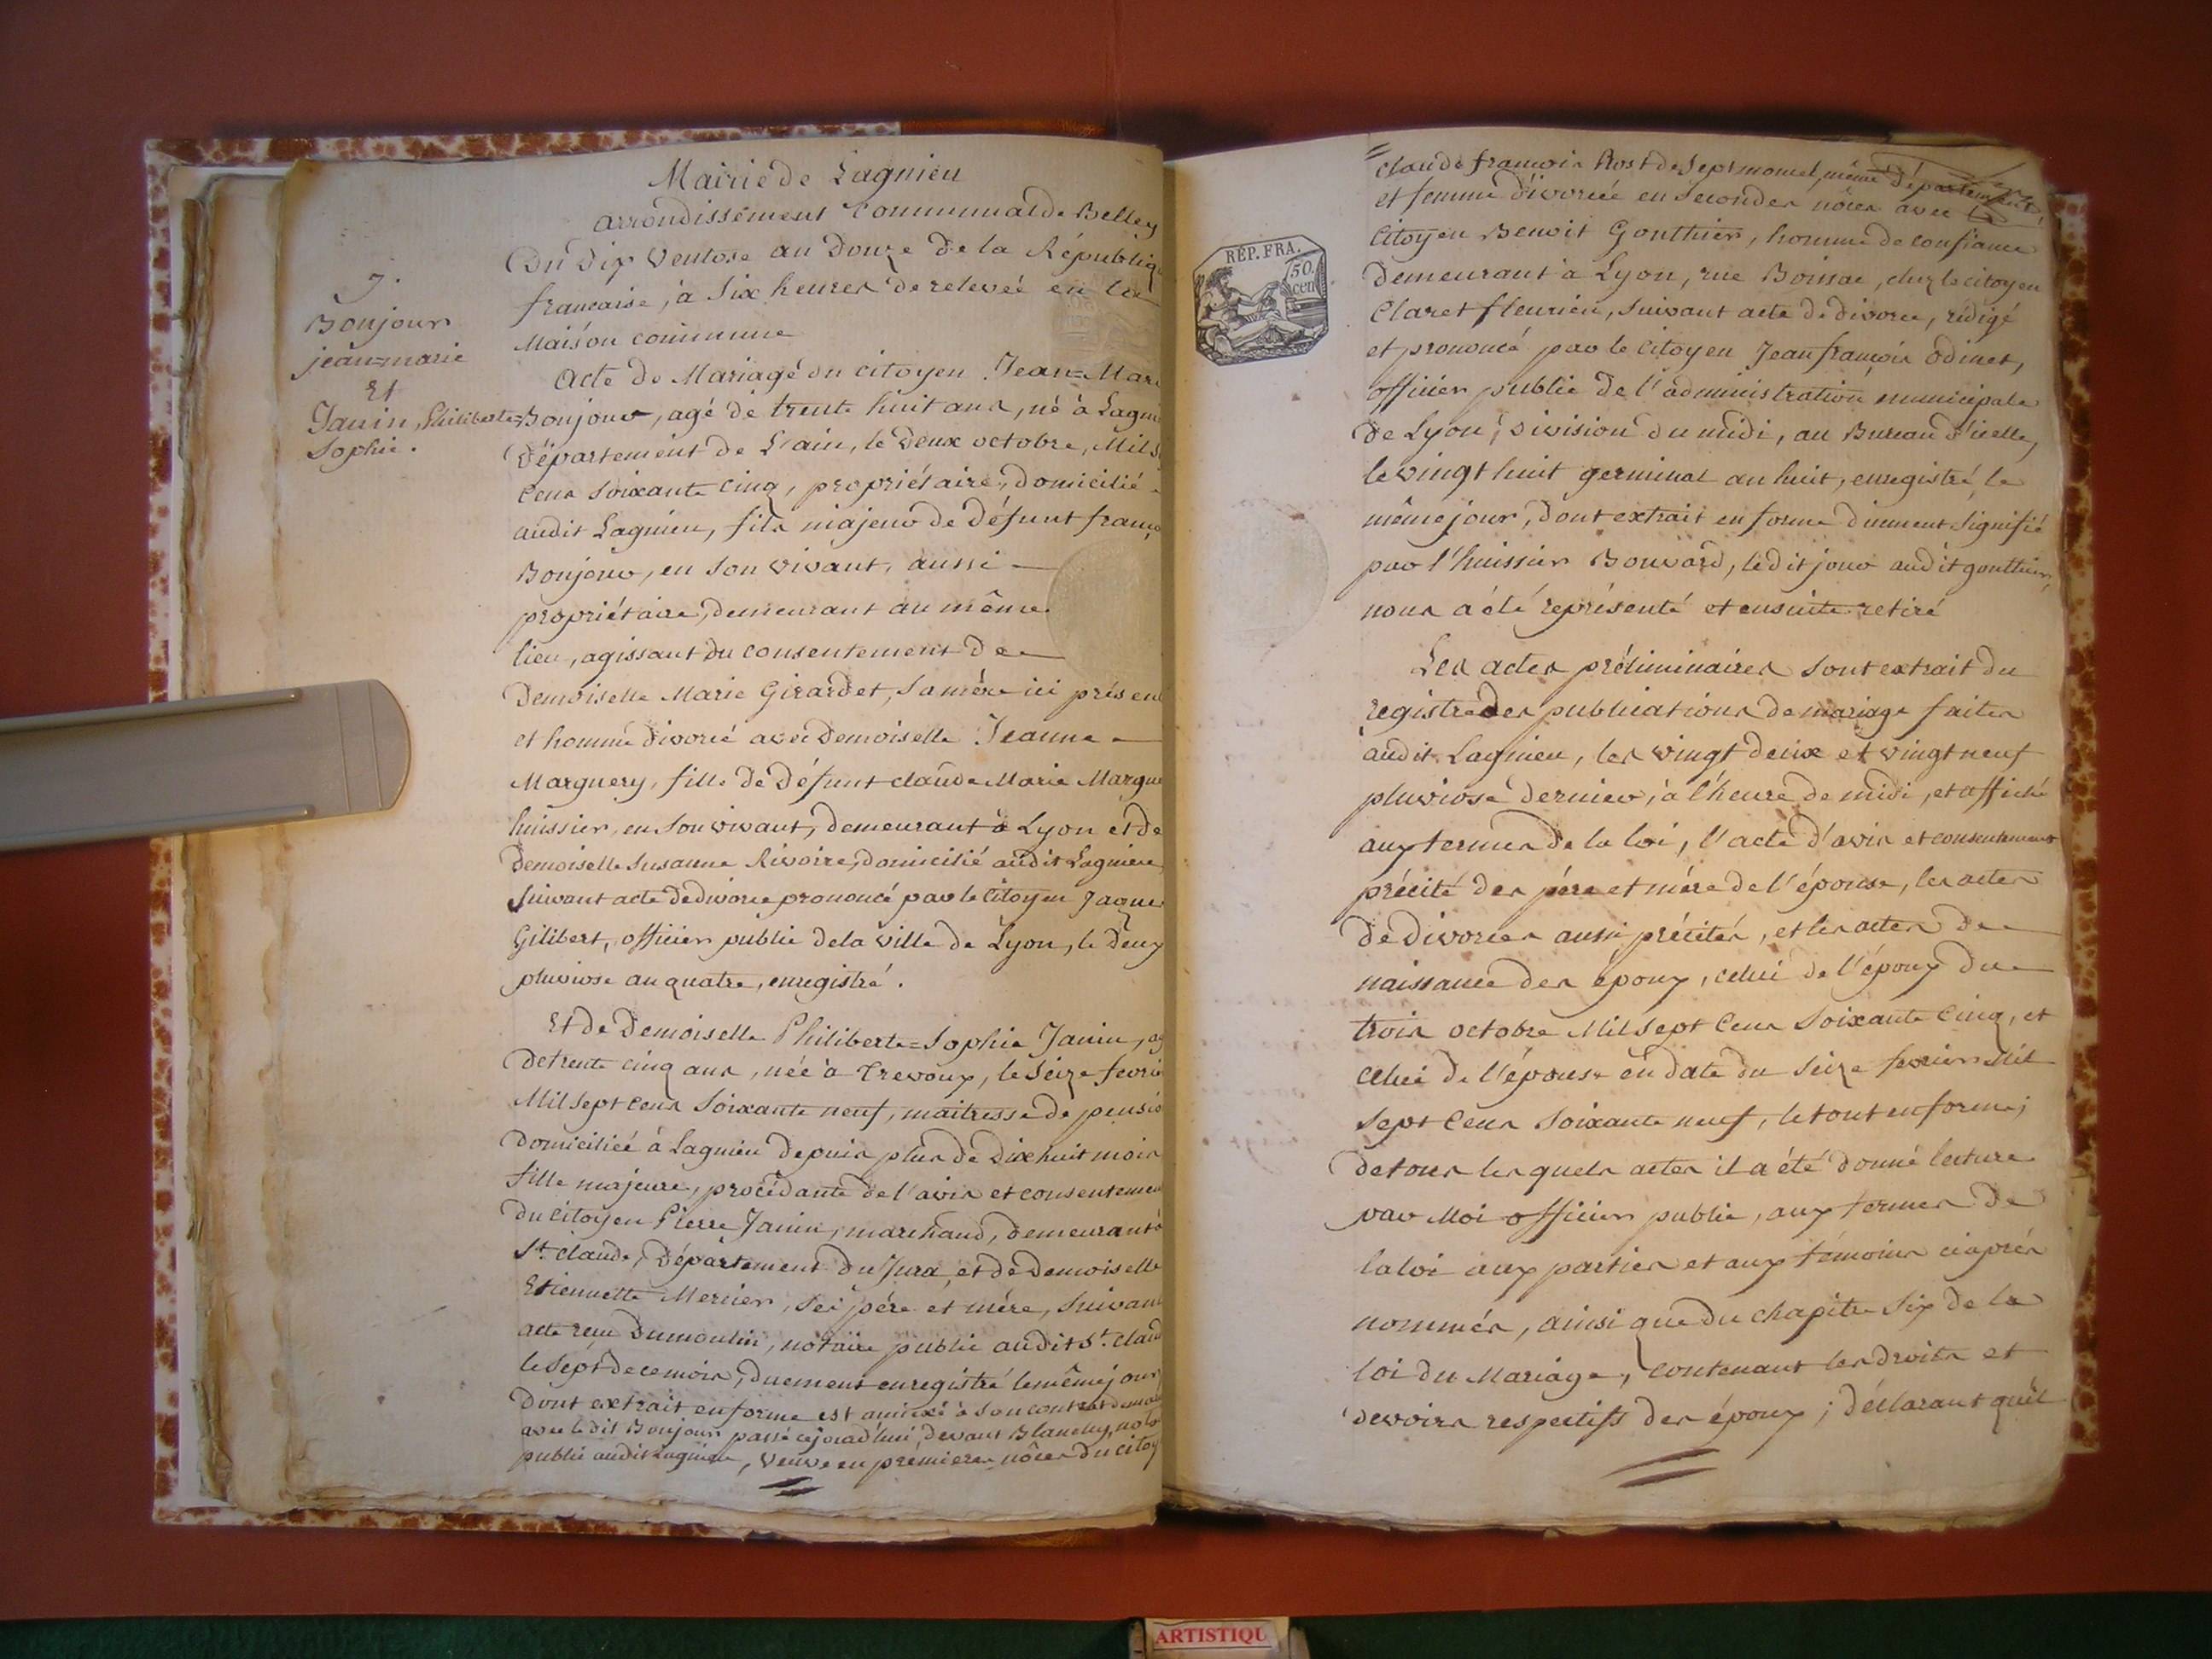 Mairie de Lagnieu
arrondissement Communal de Belley
Du Dix Ventose an Douze de la Républiq
française, à Six heures de relevée en la
Maison commune
7.
Bonjour
jean=marie
Et
Janin, Philiberte=
Sophie.
Acte de Mariage du citoyen Jean=Mari
Bonjour, agé de trente huit ans, né à Lagni
Département de L'ain, le Deux octobre, Mil s
Cens Soixante Cinq, propriétaire, domicilié
audit Lagnieu, fils majeur de Défunt franç
Bonjour, en Son vivant, aussi
propriétaire, demeurant au même
lieu, agissant du consentement de
Demoiselle Marie Girardet, Sa mère ici présen
et homme divorcé avec Demoiselle Jeanne
Marguery, fille de Défunt claude Marie Margue
huissier, en Son vivant, demeurant à Lyon et de
Demoiselle Susanne Rivoire, domicilié audit Lagnieu
Suivant acte de divorce prononcé par le Citoyen Jaque
Gilibert, officier public de la ville de Lyon, le deux
pluviose an quatre, enregistré.
Et de Demoiselle Philiberte=Sophie Janin, ag
de trente cinq ans, née à Trevoux, le Seize fevrie
Mil Sept Cens Soixante neuf, maitresse de pensio
domiciliée à Lagnieu depuis plus de Dix huit mois
fille majeure, procédante de l'avis et consentemen
du citoyen Pierre Janin, marchand, demeurant à
St. claude, Département du Jura, et de Demoiselle
Etiennette Mercier, Sei père et mère, Suivan
acte reçu Dumoulin, notaire public audit St. Claud
le Sept de ce mois, duement enregistré le même jour,
Dont extrait en forme est annexé à Son contrat de ma
avec le dit Bonjour passé cejourd'hui, devant Blanchy, nota
public audit Lagnieu, Veuve en premieres nôces du citoy
Claude françois Rost de Septmoncel, même département,
et femme divorcée en Secondes nôces avec le
Citoyen Benoit Gonthier, homme de confiance
Demeurant à Lyon, rue Boissac, chez le citoyen
Claret fleurieu, Suivant acte de divorce, rédigé
et prononcé par le Citoyen Jean françois Odinet,
officier public de l'administration municipale
de Lyon, Division du midi, au Bureau d'icelle,
le vingt huit germinal an huit, enregistré, le
même jour, dont extrait en forme duement Signifié
par l'huissier Bouvard, ledit jour audit gonthier,
nous a été représenté et ensuite retiré
Les actes préliminaires Sont extrait du
registre des publications de mariage faites
audit Lagnieu, les vingt deux et vingt neuf
pluviose dernier, à l'heure de midi, et affiché
aux termes de la loi, l'acte d'avis et consentement
précité des père et mère de l'épouse, les actes
de divorces aussi précités, et les actes de
naissance des époux, celui de l'époux du
trois octobre Mil Sept Cens Soixante Cinq, et
celui de l'épouse en date du Seize fevrier Mil
Sept Cens Soixante neuf, le tout en forme;
de tous lesquels actes il a été donné lecture
par Moi officier public, aux termes de
la loi aux parties et aux témoins ciaprès
nommés, ainsi que du chapitre Six de la
loi du Mariage, contenant les droits et
devoirs respectifs des époux; déclarant qu'il
RÉP. FRA.
50.
cen
ARTISTIQU